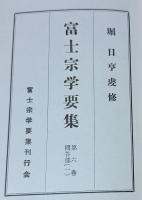 堀日亨虔修
富士宗学要集
第六巻
問答部(一)
富士宗学要集刊行会